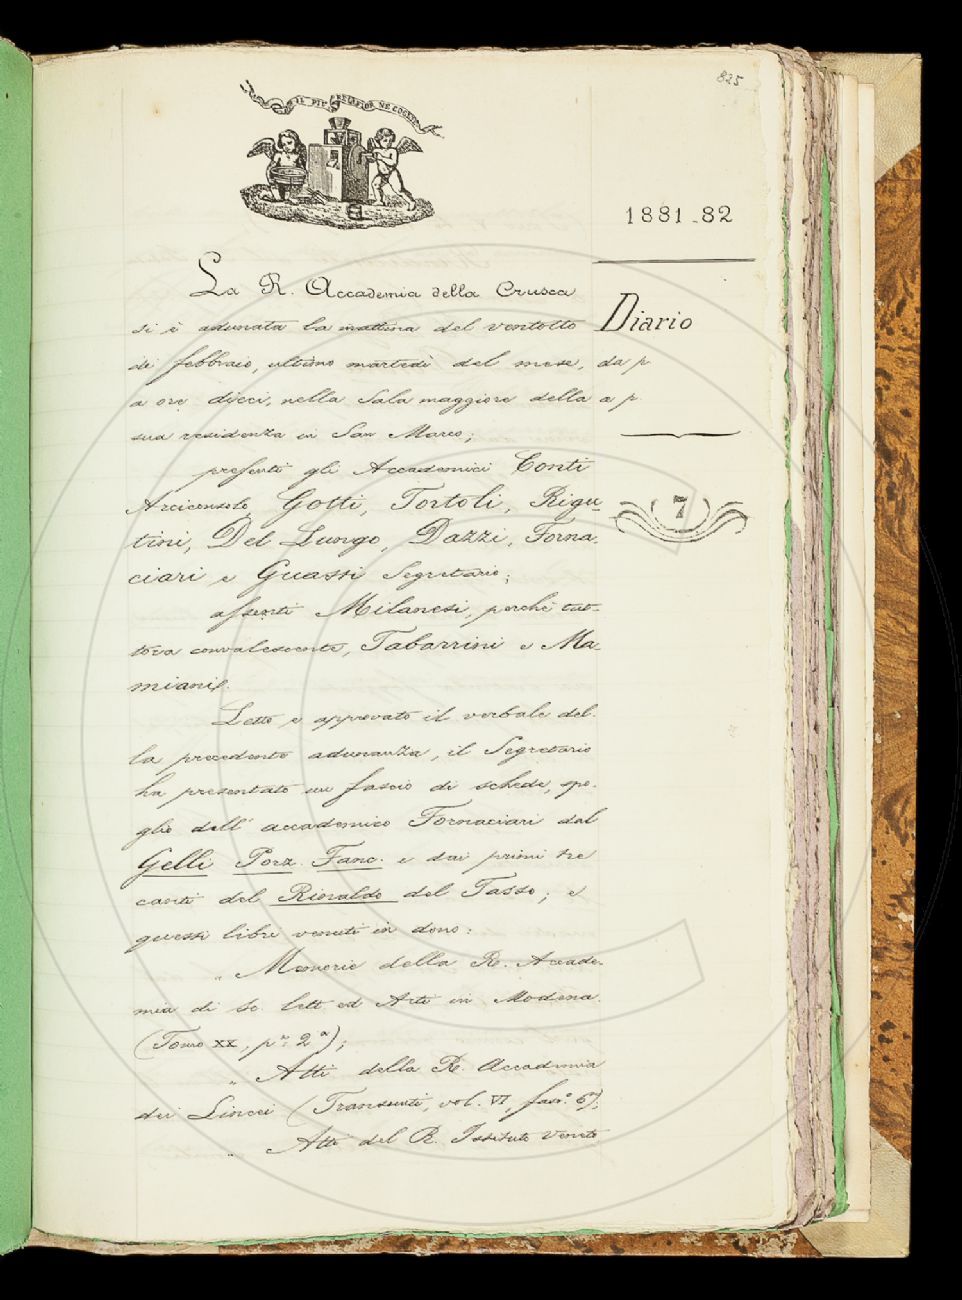 825
IL PIÙ BEL FIOR NE COGLIE
1881-82
La R. Accademia della Crusca
si è adunata la mattina del ventotto
di febbraio, ultimo martedì del mese,
a ore dieci, nella Sala maggiore della
sua residenza in San Marco;
presenti gli Accademici Conti
Arciconsolo, Gotti, Tortoli, Rigu-
tini, Del Lungo, Dazzi, Forna-
ciari e Guasti Segretario;
assenti Milanesi, perchè tut-
tora convalescente, Tabarrini e Ma-
miani.
Letto e approvato il verbale del-
la precedente adunanza, il Segretario
ha presentato un fascio di schede, spo-
glio dell' accademico Fornaciari dal
Gelli Porz. Fanc. e dai primi tre
canti del Rinaldo del Tasso; e
questi libri venuti in dono:
„ Memorie della R. Accade-
mia di Sc. Lett. ed Arti in Modena
(Tomo XX, p.e 2a);
„ Atti della R. Accademia
dei Lincei (Transunti, vol. VI, fasc.o 6o);
„ Atti del R. Istituto Veneto
Diario
da p
a p
7